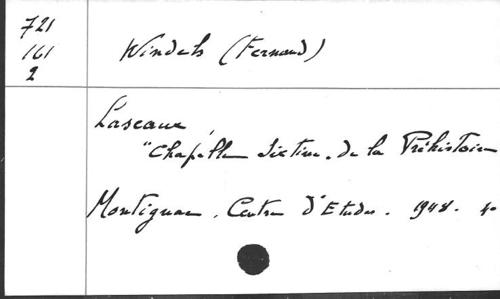 721
161
2
Windels (Fernand)
Lascaux,
"Chapelle Sixtine" de la Préhistoire
Montignac. Centre d'Etudes. 1948. 4o